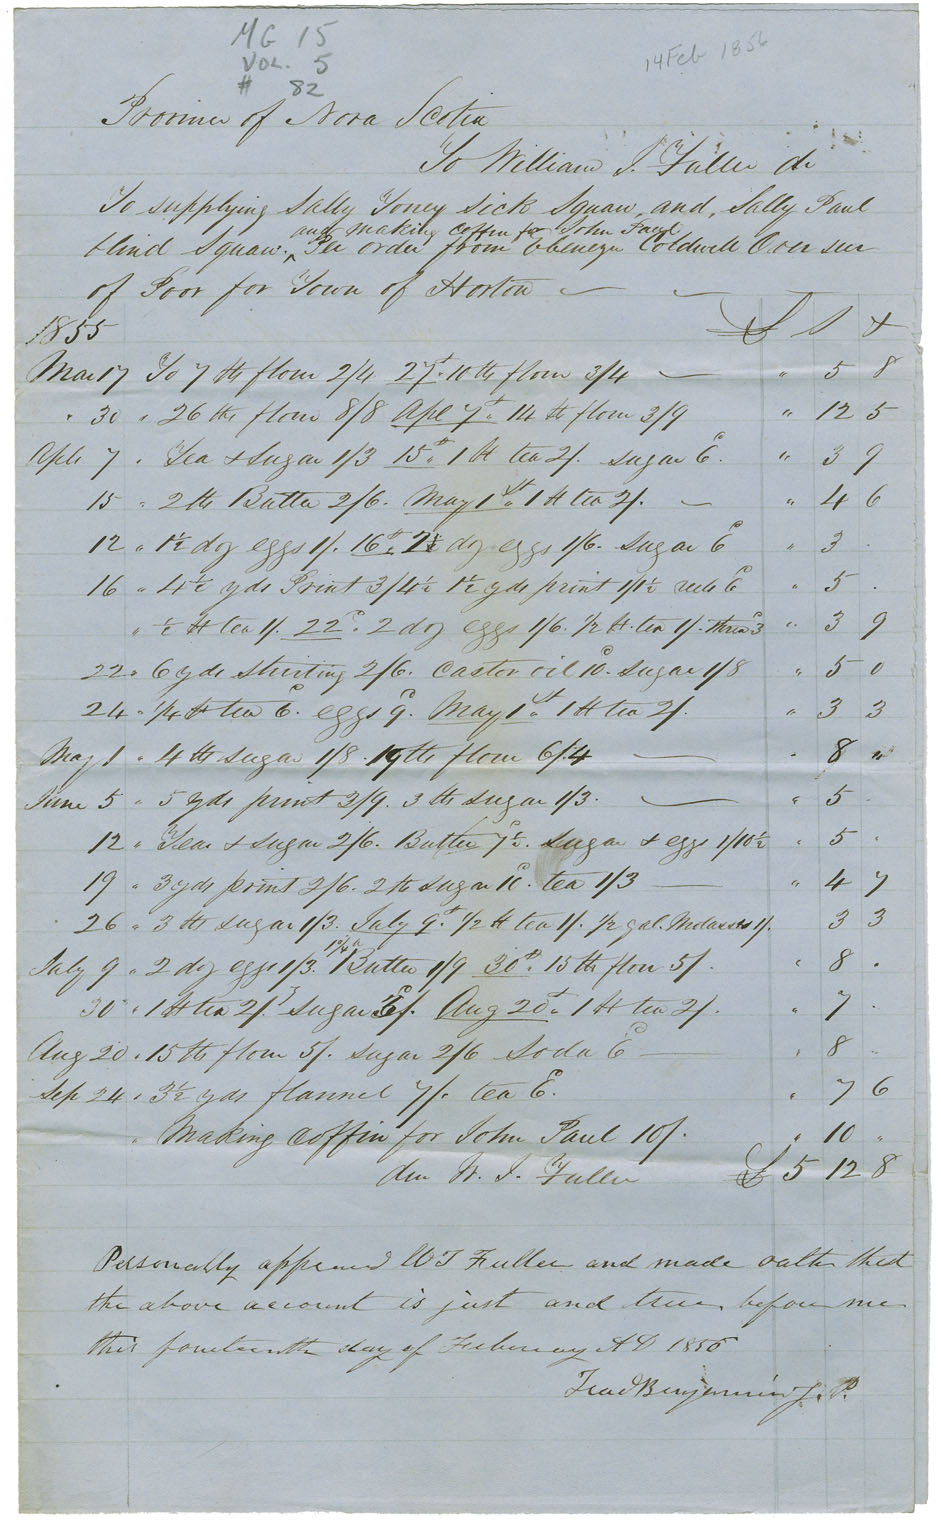 MG 15
VOL. 5
# 82
14 Feb 1856
Province of Nova Scotia
To William J. Fuller dr
To supplying Sally Toney sick Squaw, and, Sally Paul
and making coffin for John Paul
blind Squaw. ^ Per order from Ebenezer Coldwell Over seer
of Poor for Town of Horton
£ s d
1855
Mar 17 To 7 lb flour 2/4 27th 10 lb flour 3/4 — " 5 8
" 30 " 26 lb flour 8/8 Apl 7th " 14 lb flour 3/9 " 12 5
Apl 7 " Tea & Sugar 1/3 15th " 1 lb tea 2/. Sugar 6d. " 3 9
15 " 2 lb Butter 2/6. May 1st " 1 lb tea 2/. — " 4 6
12 " 1½ doz eggs 1/. 16th " doz eggs 1/6. Sugar 6d " 3
16 " 4½ yds Print 3/4½ 1½ yds print 1/1½ reels 6d " 5 .
" ½ lb tea 1/. 22d " 2 doz eggs 1/6. 1/2 lb. tea 1/. thread 3d " 3 9
22 " 6 yds shirting 2/6. Castor oil 10d. Sugar 1/8 " 5 0
24 " 1/4 lb tea 6d. eggs 9d. May 1st " 1 lb tea 2/. " 3 3
May 1 " 4 lb sugar 1/8. 19 lb flour 6/4 — " 8 "
June 5 " 5 yds print 3/9. 3 lb sugar 1/3. — " 5 .
12 " Tea & sugar 2/6. Butter 7½d. sugar & eggs 1/10½ " 5 "
19 " 3 yds print 2/6. 2 lb sugar 10d. tea 1/3 — " 4 7
26 " 3 lb sugar 1/3. July 9th " 1/2 lb tea 1/. 1/2 gal. Molasses 1/. 3 3
July 9 " 2 doz eggs 1/3. Butter 1/9 30th " 15 lb flour 5/. " 8 .
30 " 1 lb tea 2/. Sugar Aug 20th " 1 lb tea 2/. " 7 .
Aug 20 " 15 lb flour 5/. Sugar 2/6 Soda 6d — " 8 "
Sep 24 " 3½ yds flannel 7/. tea 6d. " 7 6
" Making coffin for John Paul 10/. " 10 "
W. J. Fuller £ 5 12 8
Personally appeared W J Fuller and made oath that
the above account is just and true, before me
this fourteenth day of February AD 1856
Benjamin J. P.